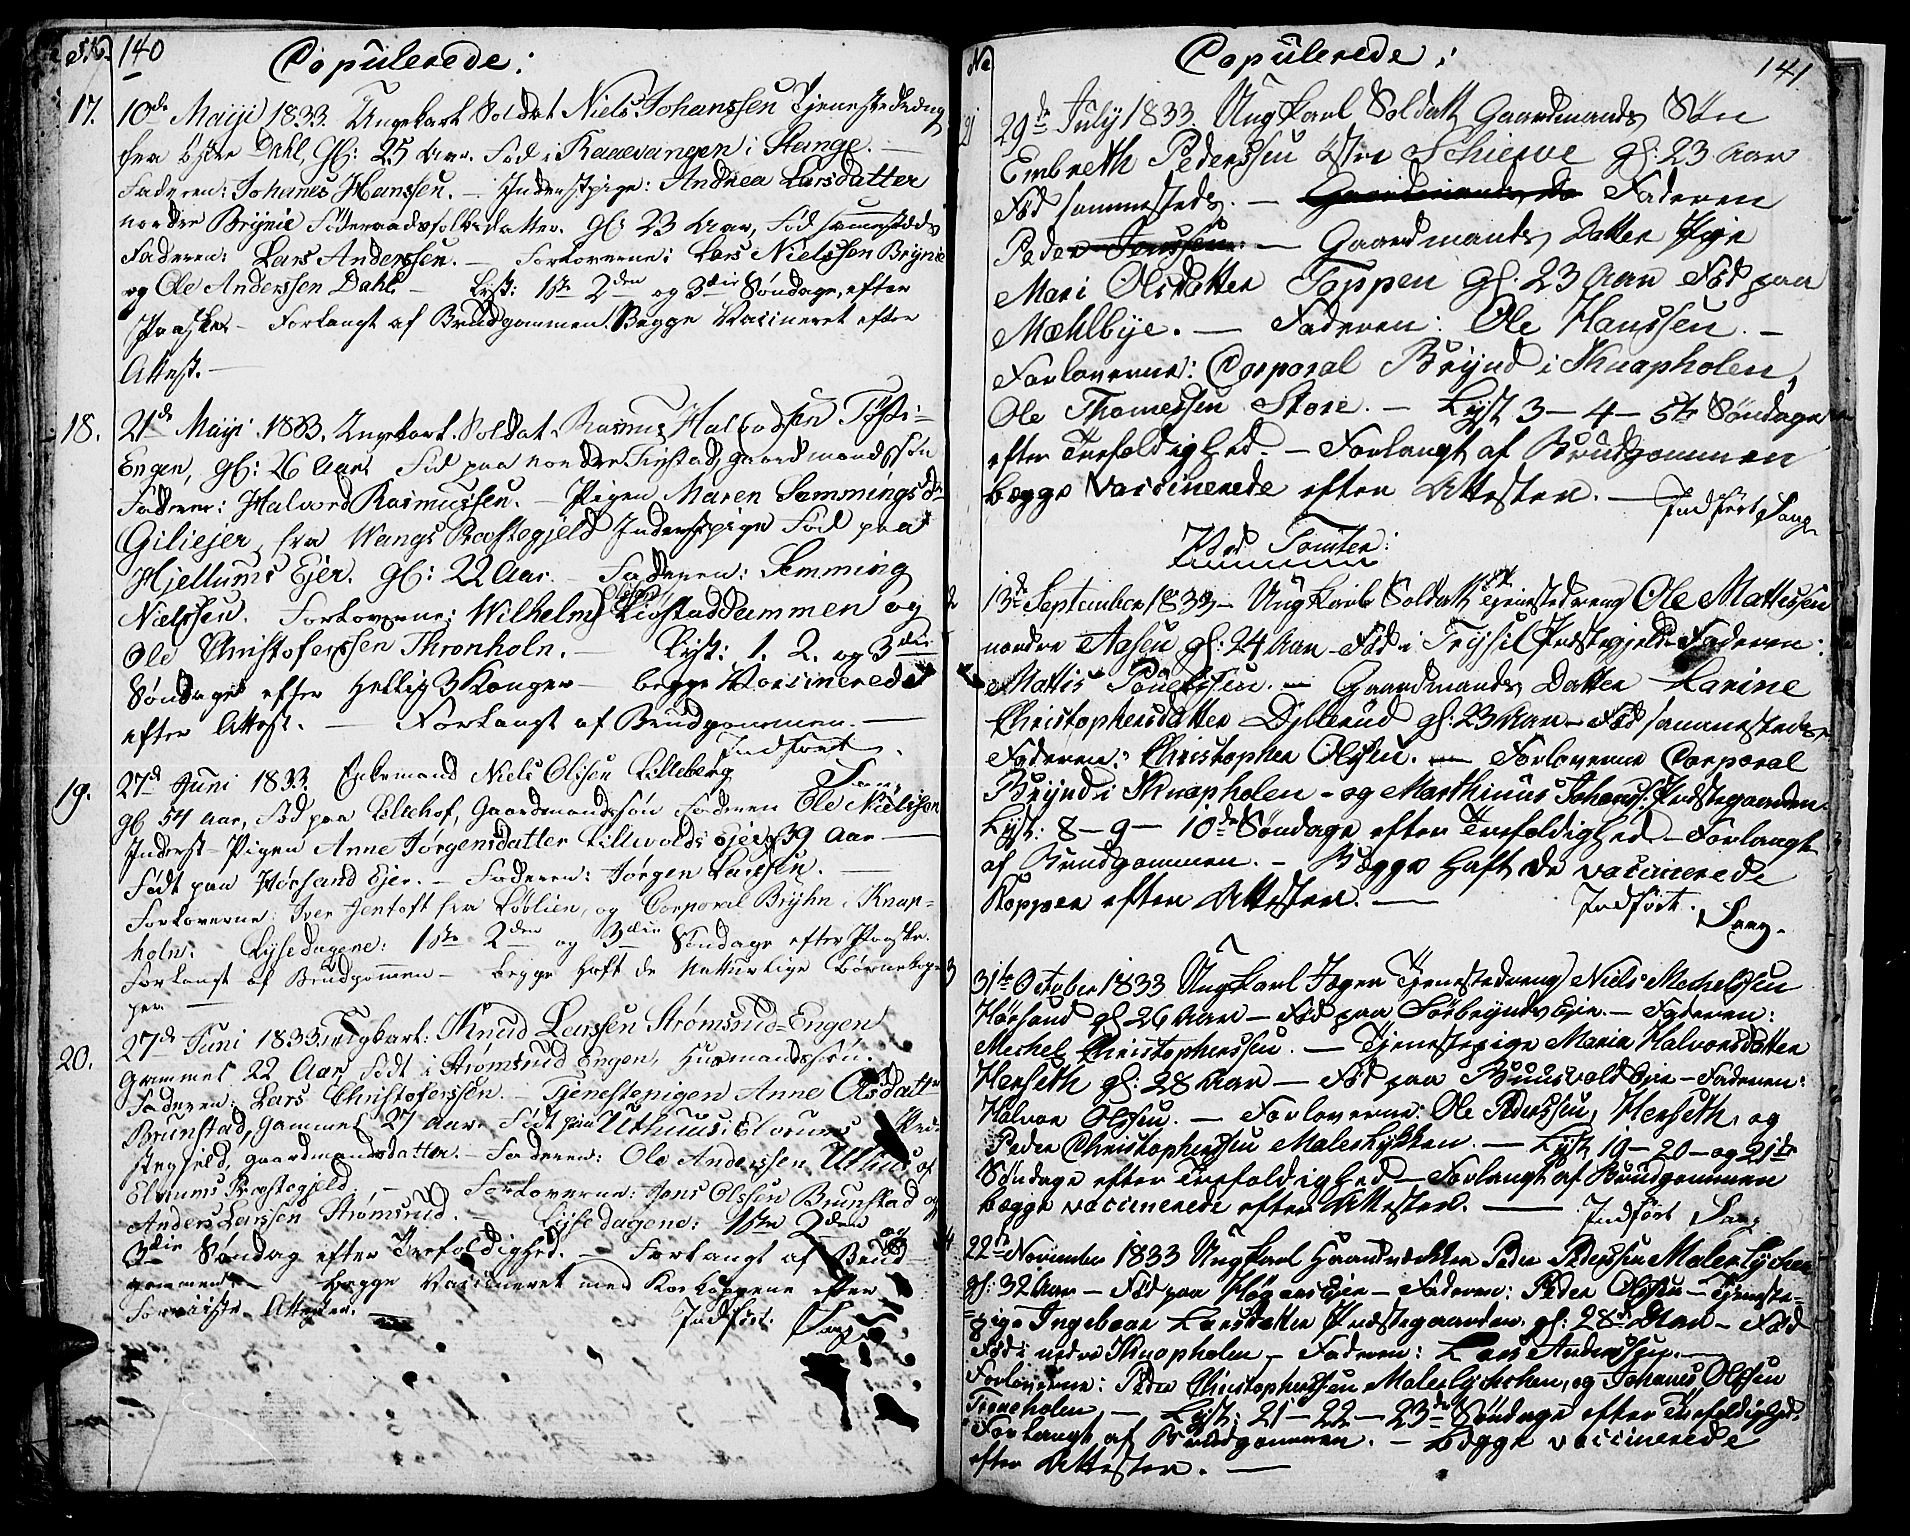 No. 140
Copulerede:
17. 10de Maiji 1833. Ungekarl Soldat Niels Johanssen Tjenestedreng
fra Dahl, gl: 25 Aar. Fød i Kaaevangen i Stange. —
Faderen: Johanes Hanssen. — Inderstpige: Andrea Larsdatter
nordre Brÿnie Føderaadsfolksdatter. gl: 23 Aar, Fød sammesteds
Faderen: Lars Anderssen. — Forloverne: Lars Nielssen Brÿnie
og Ole Anderssen Dahl — Lÿst: 1ste 2den og 3die Søndage, efter
Paaske — Forlangt af Brudgommen. Begge Vacineret efter
Attest. —
18. 21de Maiji 1833. Ungekarl. Soldat. Rasmus Halvorssen
Engen, gl: 26 Aar. Fød paa nordre gaardmandssøn
Faderen: Halvord Rasmussen. — Pigen Maren Semmingsdr
Giliejer, fra Wangs Præstegjeld Inderstpige Fød paa
Hjellums Ejer. gl: 22 Aar. — Faderen: Semming
Nielssen. Forloverne: Wilhelm Olssen Livstaddammen og
Ole Christoferssen Thronholn. — Lÿst: 1. 2. og 3die
Søndage efter Hellig 3 Konger — begge Vaccinerede
efter Attest. — Forlangt af Brudgommen. —
Indført
19. 27de Juni 1833. Enkemand Niels Olssen Lilleberg Sang.
gl. 54 Aar, Fød paa Lillehof, Gaardmandssøn Faderen Ole Nielssen
Inderst-Pigen Anne Jørgensdatter Lillevolds Ejer gl 39 Aar —
Født paa Hørsand Ejer. — Faderen: Jørgen Larssen. —
Forloverne: Iver Jentoft fra Løvlien, og Corporal Brÿhn i Knap-
holn: Lÿsedagene: 1ste 2den og 3die Søndage efter Paaske.
Forlangt af Brudgomen — begge haft de Naturlige Børnekop-
per. —
20. 27de Juni 1833. Ungkarl: Knud Larssen Strømsrud-Engen
gammel 22 Aar født i Strømsrud Engen, Husmandssøn.
Faderen: Lars Christoferssen. — Tjenestepigen Anne Olsdatter
Brunstad, gammel 27 Aar. Født paa Uthuus i Elverums Præ-
stegjeld, gaardmandsdatter. — Faderen: Ole Anderssen Uthus af
Elvrums Præstegjeld. — Forloverne: Jens Olssen Brunstad og
Anders Larssen Strømsrud. — Lÿsedagene: 1ste 2den og
3die Søndag efter Trefoldighed. — Forlangt af Brud-
gommen — begge Vacineret med Kokopperne efter
Attester. —
Indført. Sang
No Copulerede: 141.
21 29de Julÿ 1833. Ungkarl Soldatt Gaardmands Søn
Embreth Pederssen østre Schiesve gl: 23 Aar
Fød sammesteds. — Gaardmands do Faderen
Peder Jenssen: — Gaardmands Datter Pige
Mari Olsdatter Toppen gl: 23 Aar Fød paa
Mæhlbÿe. — Faderen: Ole Hanssen. —
Forloverne: Corporal Brÿnd i Knapholen,
Ole Thomessen Store. — Lÿst 3 — 4 — 5te Søndage
efter Trefoldighed. — Forlangt af Brudgommen
begge Vaccinerede efter Attester. — Indført Sang
Ved Tomter:
2 13de September 1833 — Ungkarl Soldatt Tjenestedreng Ole Mattissen
nordre Aasen gl: 24 Aar — Fød i Trÿsil Prestegjeld Faderen:
Mattis Pouelssen. — Gaardmands Datter Karine
Christophersdatter Dÿllerud gl: 23 Aar — Fød sammesteds
Faderen: Christopher Olssen. — Forloverne Corporal
Brÿnd i Knapholen — og Marthinus Johans. Prestegaarden.
Lÿst: 8 — 9 — 10de Søndage efter Trefoldighed — Forlangt
af Brudgommen. — Begge haft de vaccinerede
Kopper efter Attester. — Indført.
Sang.
3 31te October 1833 Ungkarl Jæger Tjenestedreng Niels Mechelssen
Hørsand gl 26 Aar — Fød paa Sørbrÿnds Eie. — Faderen:
Mechel Christopherssen. — Tjenestepige Maria Halvorsdatter
Herseth gl: 28 Aar — Fød paa Bruusvold Eie — Faderen:
Halvor Olssen. — Forloverne: Ole Pederssen, Herseth, og
Peder Christopherssen Malerlÿkken. — Lÿst 19 — 20 — og 21de
Søndage efter Trefoldighed — Forlangt af Brudgommen
begge vaccinerede efter Attester. — Indført Sang
4 22de November 1833 Ungkarl Haandverker Peder Pederssen Malerlÿcken
gl: 32 Aar — Fød paa Høgers Eie — Faderen: Peder Olssen — Tjeneste-
pige Ingeboer Larsdatter Prestegaarden gl: 28 Aar — Fød
Fød i nedre Knapholen — Faderen: Lars Anderssen. —
Forloverne: Peder Christopherssen Malerlÿchchen, og Johanes Olssen
Troneholen — Lÿst: 21 — 22 — 23de Søndage efter Trefoldighed.
Forlangt af Brudgommen. — Begge vaccinerede
efter Attester. —